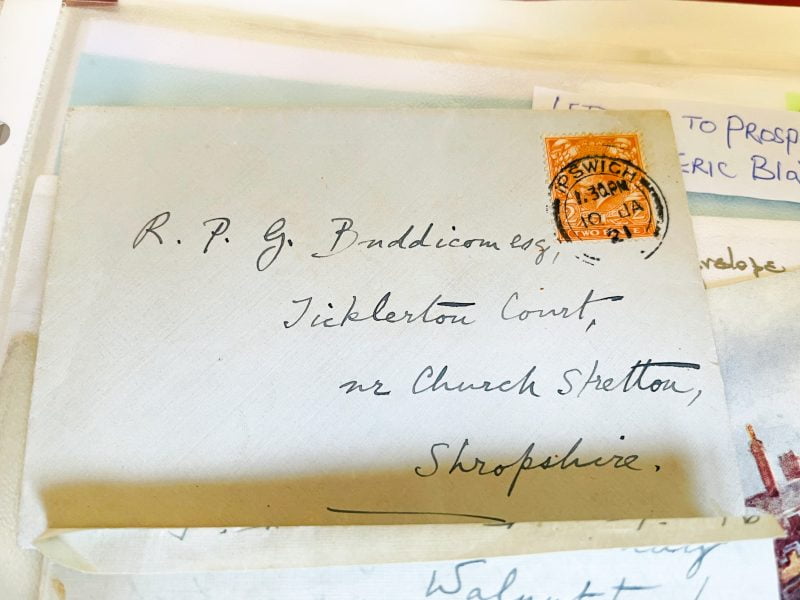 TO PROSP
ERIC Bla
IPSWICH
1.30PM
10 JA
21
TWO PENCE
R. P. G. Buddicom esq,
Ticklerton Court,
nr Church Stretton,
Shropshire.
velope